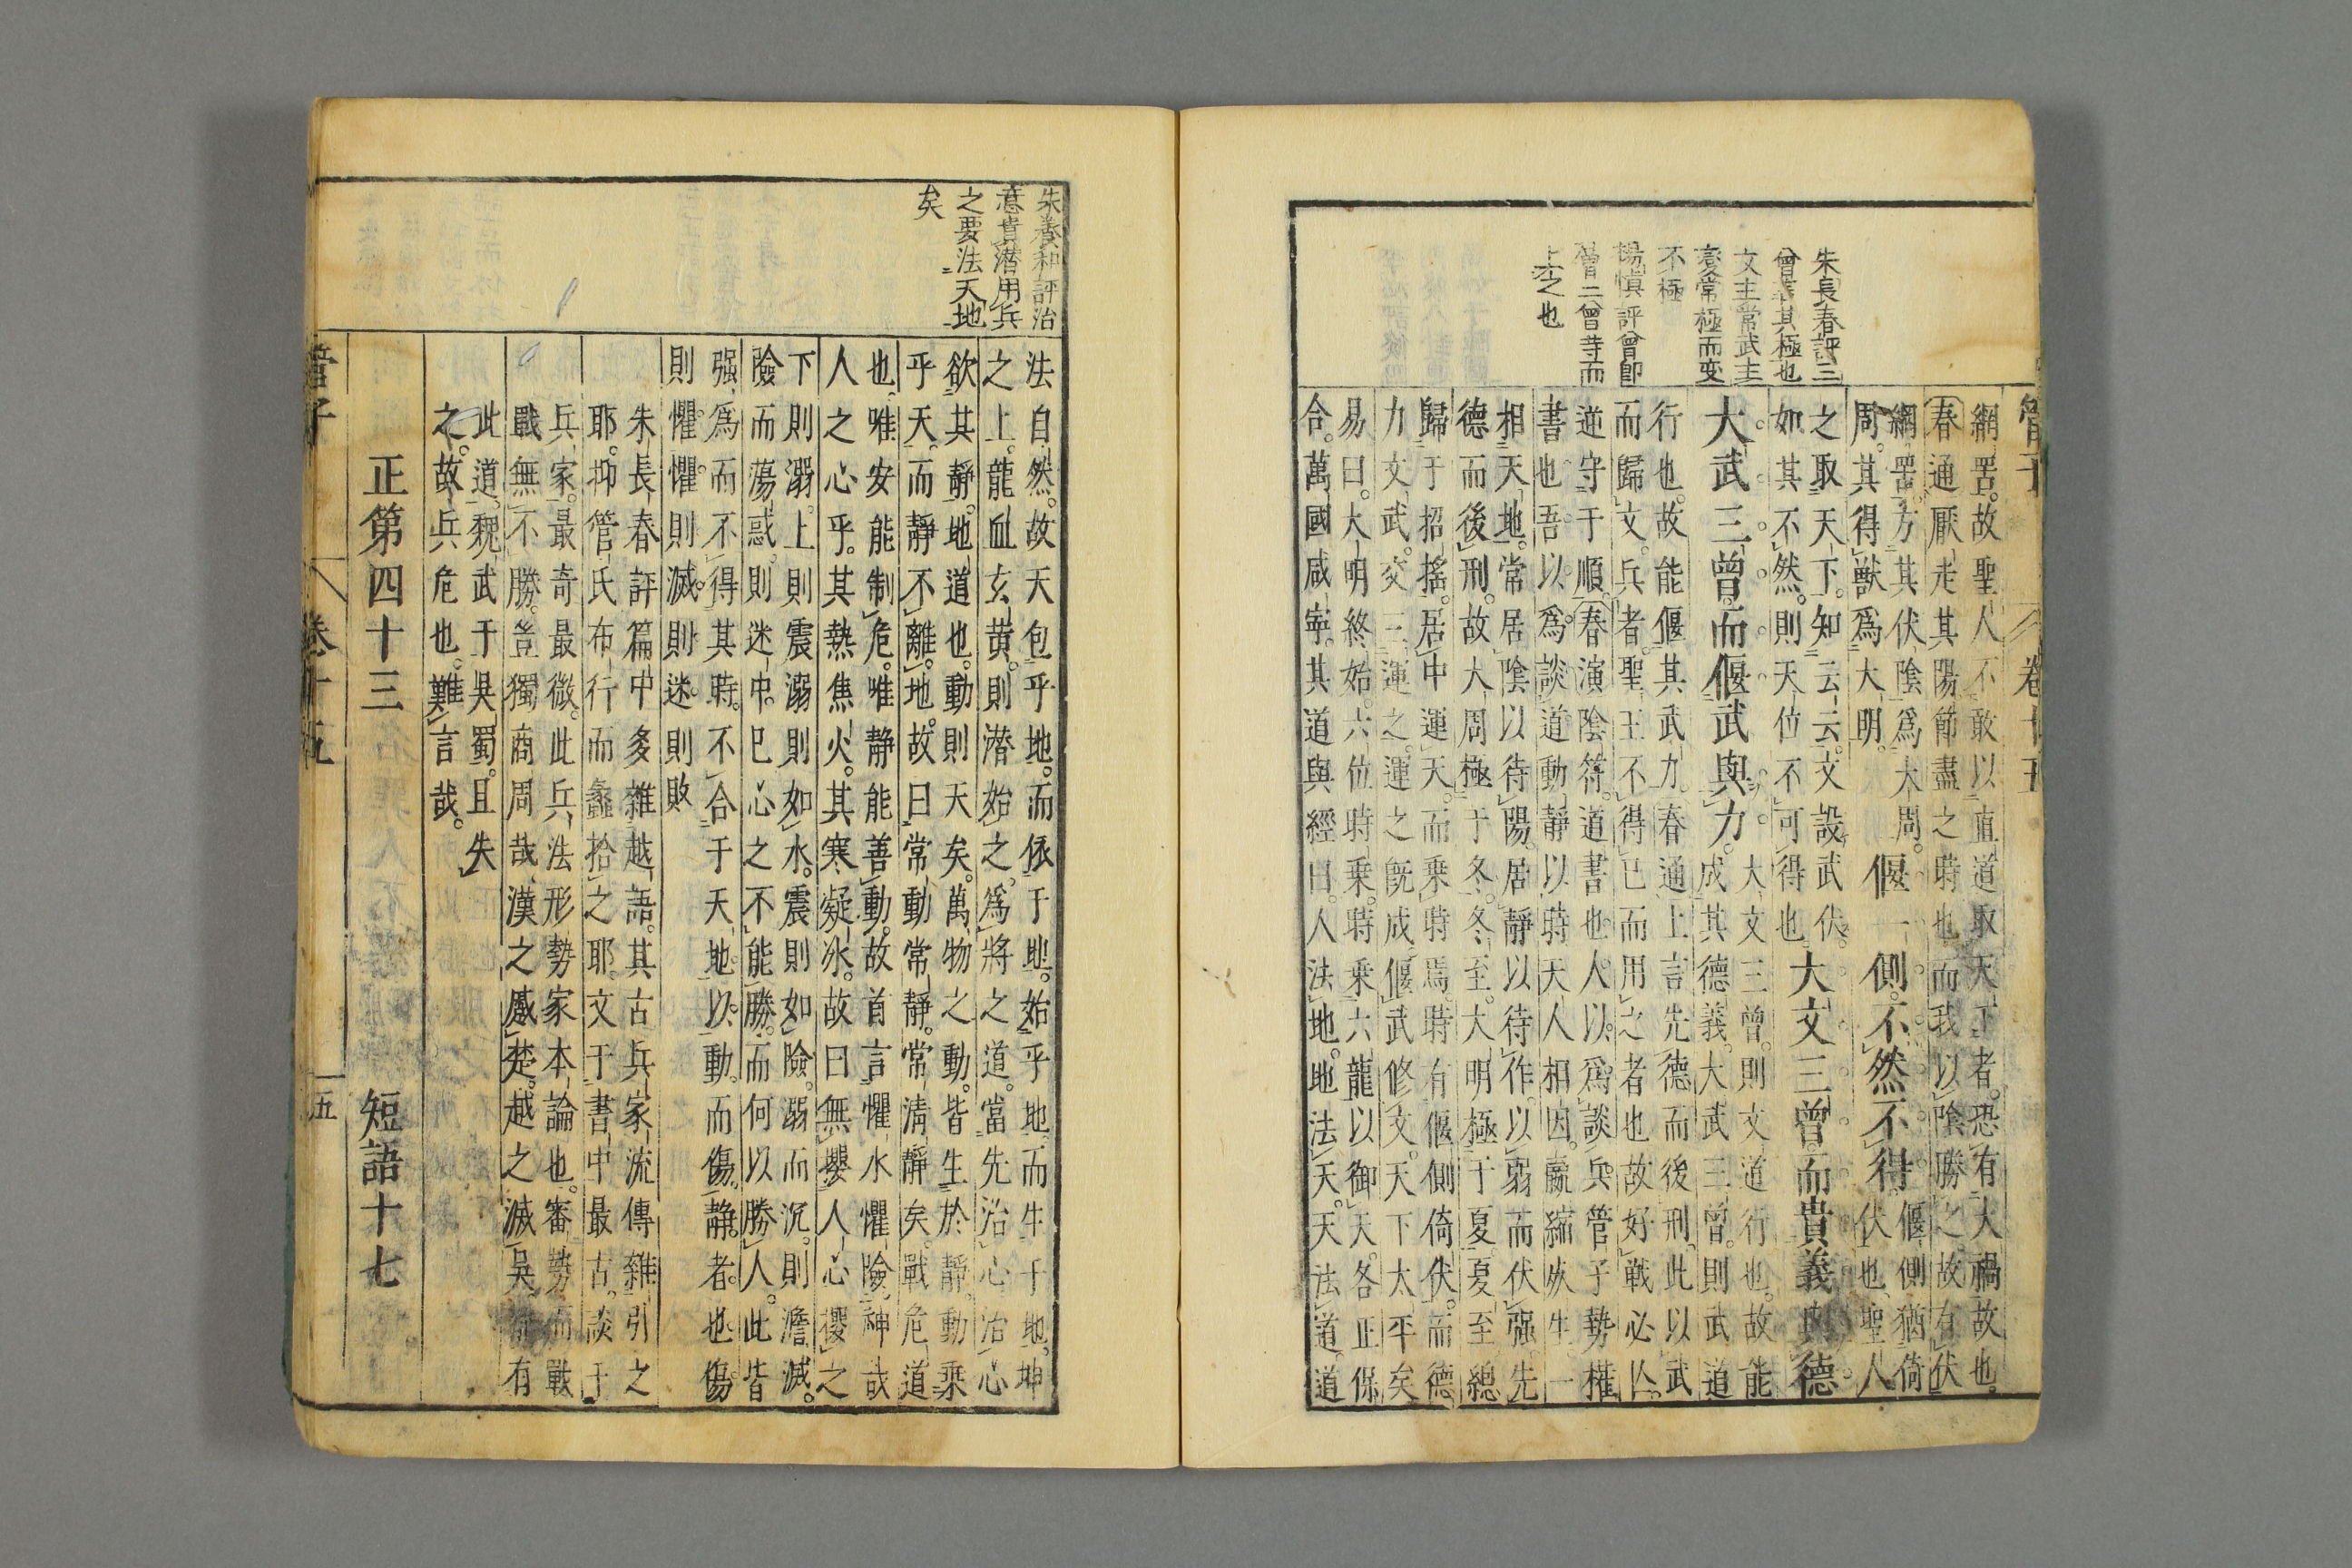 管子 卷十五
朱長春評三
曾其極也
文主常武主
変常極而变
不極
楊慎評曾即
曾二曾寺而
上之也
網罟。故聖人不敢以直道取天下者。恐有大禍故也。
春通厭走其陽節盡之時也而我以陰勝之故有伏
網罟方其伏陰爲大周。
周。其得獸爲大明。
偃一側。不然不得。
偃側猶倚
伏也聖人
之取天下。知云云。文設武伏。
如其不然。則天位不可得也。
大文三曾。而貴義與德。
大武三曾。而偃武與力。
大文三曾。則文道行也。故能
成其德義。大武三曾。則武道
行也。故能偃其武力。春通上言先德而後刑。此以武
而歸文。兵者。聖王不得已而用之者也故好戰必亾。
逆守于順。春演陰符。道書也。人以。爲談兵。管子勢權
書也。吾以。爲談道動靜以時天人相因。贏縮灰生一
相天地。常居陰以待陽。居靜以待作。以弱而伏强。先
德而後刑。故大周極于冬。冬至。大明極于夏。夏至總
歸于招搖。居中運天。而乘時焉。時有偃側倚伏。而德
力文武。交三運之。運之旣成。偃武修文。天下太平矣
易曰。大明終始。六位時乘。時乘六龍以御天。各正保
合。萬國咸寧。其道與經曰。人法地。地法天。天法道。道
朱養和評治
意貴潜用兵
之要法天地
矣
法自然。故天包乎地。而依于地。始乎地而生于地。坤
之上。龍血玄黄。則潜始之。爲將之道。當先治心治心
欲其靜。地道也。動則天矣。萬物之動。皆生於靜。動乘
乎天。而靜不離。地。故曰常動常靜。常清靜矣。戰危道
也。唯安能制危。唯靜能善動。故首言懼水懼險。神哉
人之心乎。其熱焦火。其寒凝冰。故曰無攖人心櫻之
下則溺。上則震溺則如水。震則如險。溺而沉。則澹滅。
險而蕩惑。則迷中。已心之不能勝。而何以勝人。此皆
强爲而不得其時。不合于天地。以動。而傷靜。者也。傷
則懼。懼則滅。則迷。則敗
朱長春評篇中多雜越語。其古兵家流傳雜引之
耶。抑管氏布行而蠡拾之耶。文于書中最古。談于
兵家。最奇最微。此兵法形勢家本論也。審勢而戰
戰無不勝。豈獨商周哉。漢之蹙楚。越之滅吳有
此道。魏武于吳蜀。且失
之。故兵危也。難言哉。
正第四十三 短語十七
管子 卷十五 五